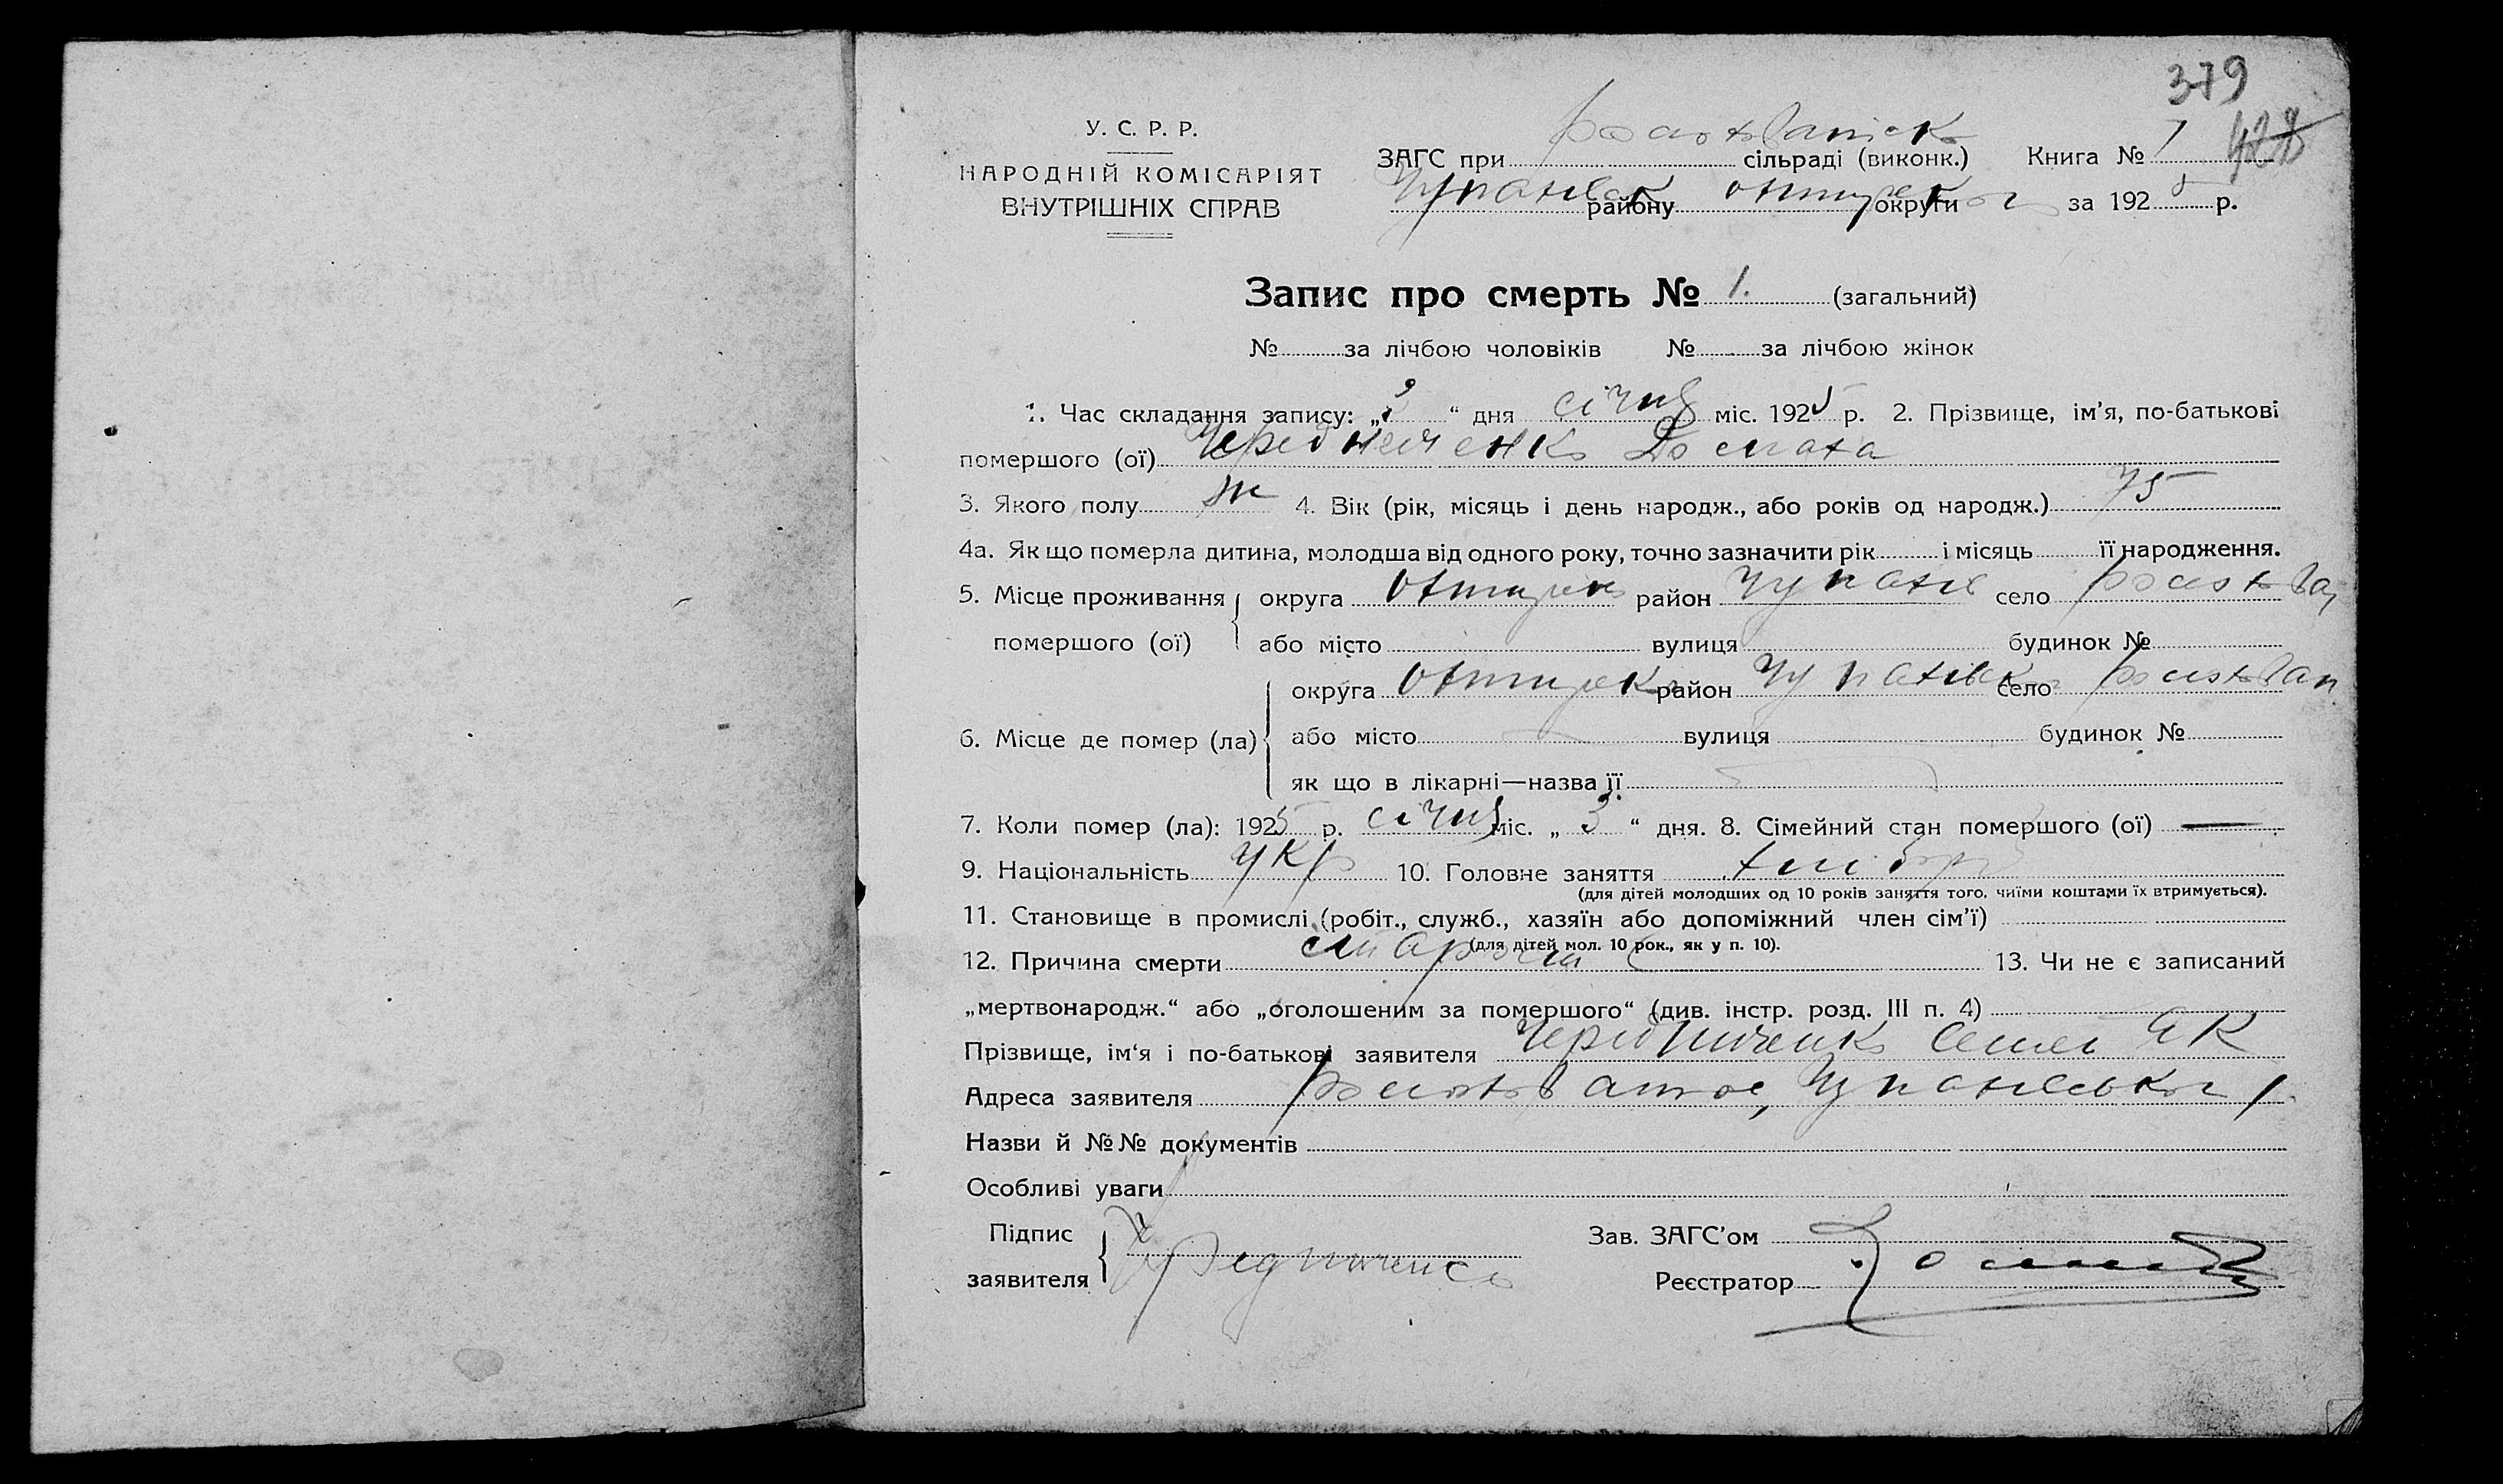 379
428
У. С. Р. Р.
НАРОДНІЙ КОМІСАРІЯТ
ВНУТРІШНІХ СПРАВ
ЗАГС при сільраді (виконк.) Книга № 1
Чупахівськ району Охтирської округи за 1925 р.
Запис про смерть № 1. (загальний)
№ за лічбою чоловіків № за лічбою жінок
1. Час складання запису: „ “ дня січня міс. 1925 р. 2. Прізвище, ім’я, по-батькові
помершого (ої) Чередниченко Домаха
3. Якого полу ж 4. Вік (рік, місяць і день народж., або років од народж.) 75
4а. Як що померла дитина, молодша від одного року, точно зазначити рік і місяць її народження.
5. Місце проживання округа Охтирськ район Чупахів село
помершого (ої) або місто вулиця будинок №
округа Охтирськ район Чупахівськ село
6. Місце де помер (ла) або місто вулиця будинок №
як що в лікарні—назва її
7. Коли помер (ла): 1925 р. січня міс. „ 3 “ дня. 8. Сімейний стан помершого (ої) —
9. Національність укр 10. Головне заняття хлібор
(для дітей молодших од 10 років заняття того, чиїми коштами їх втримується).
11. Становище в промислі (робіт., служб., хазяїн або допоміжний член сім’ї)
(для дітей мол. 10 рок., як у п. 10).
12. Причина смерти старость 13. Чи не є записаний
„мертвонародж.“ або „оголошеним за помершого“ (див. інстр. розд. III п. 4)
Прізвище, ім‘я і по-батькові заявителя Чередниченко Семен Як
Адреса заявителя Чупахівської р.
Назви й №№ документів
Особливі уваги
Підпис
заявителя Чередниченко
Зав. ЗАГС’ом
Реєстратор